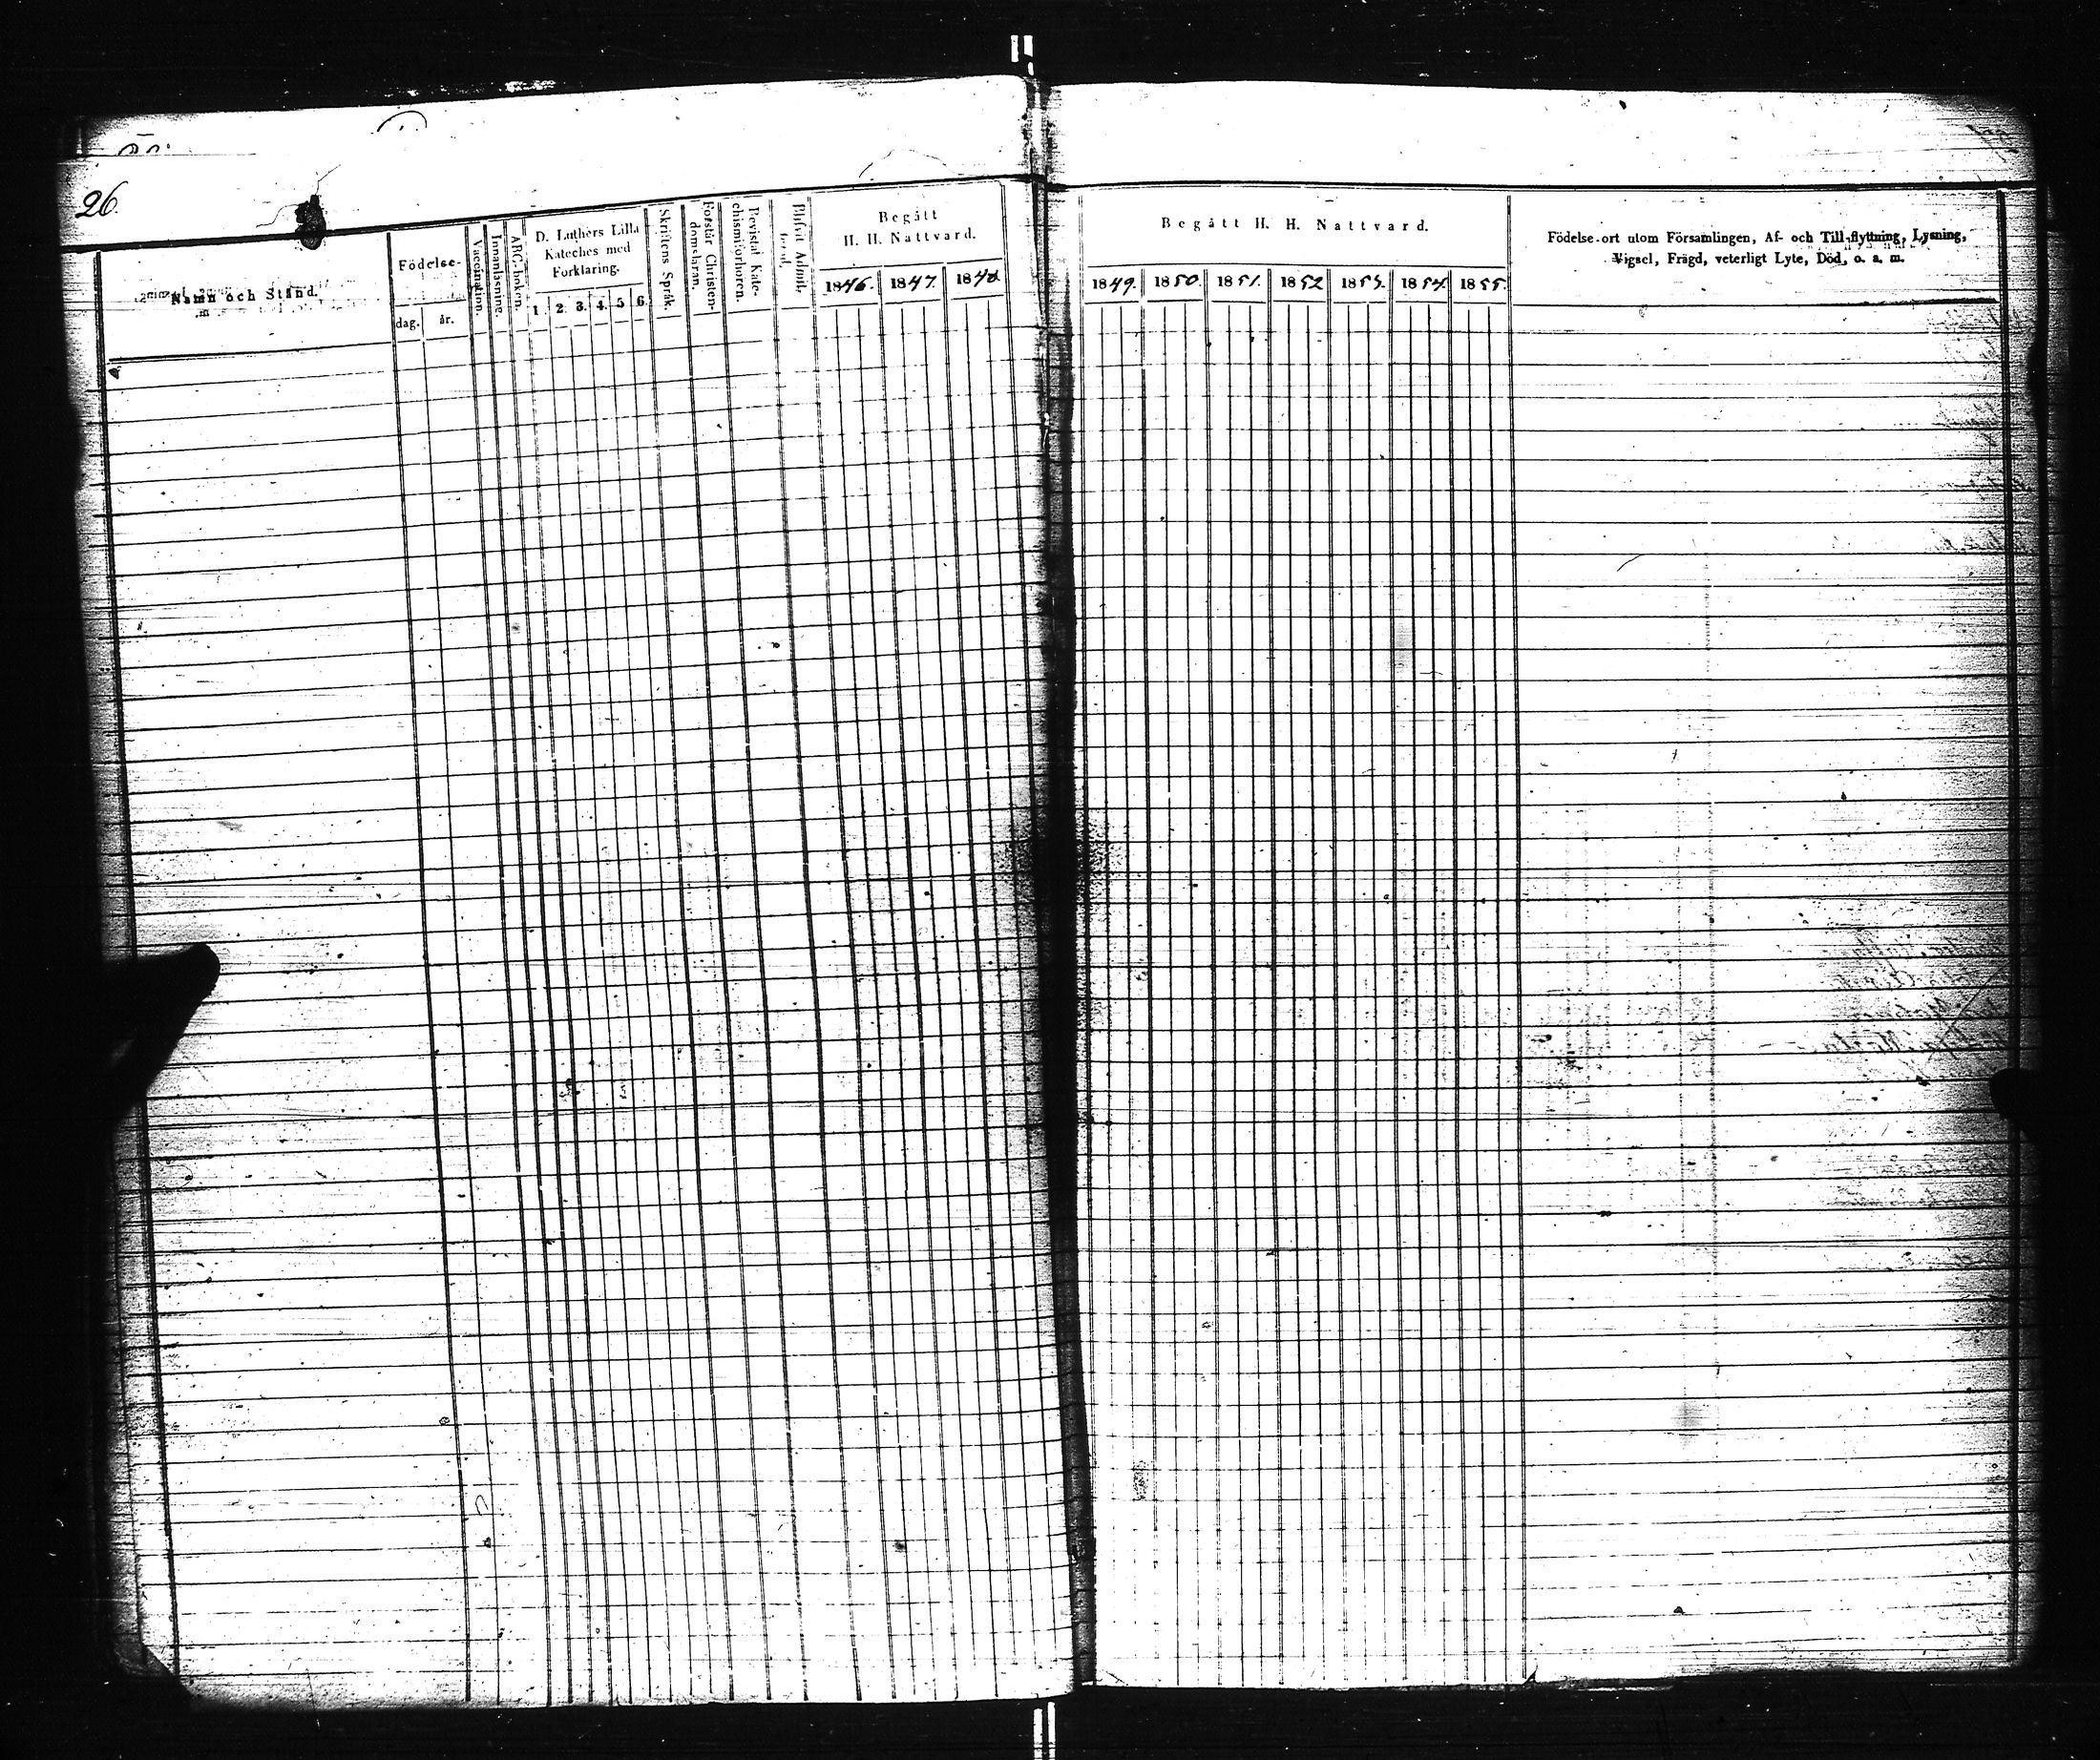 26.
Namn och Stånd.
Födelse-
dag. år.
Vaccination.
Innanläsning.
ABC-boken.
D. Luthers Lilla
Kateches med
Förklaring.
1. 2. 3. 4. 5 6.
Skriftens Språk.
Förstår Christen-
domsläran.
Bevistat Kate-
chismiförhören.
Blifvit Admit-
terad.
Begått
H. H. Nattvard.
1846. 1847. 1848.
Begått H. H. Nattvard.
1849. 1850. 1851. 1852 1853. 1854. 1855.
Födelse-ort utom Församlingen, Af- och Till-flyttning, Lysning,
Vigsel, Frägd, veterligt Lyte, Död, o. a. m.